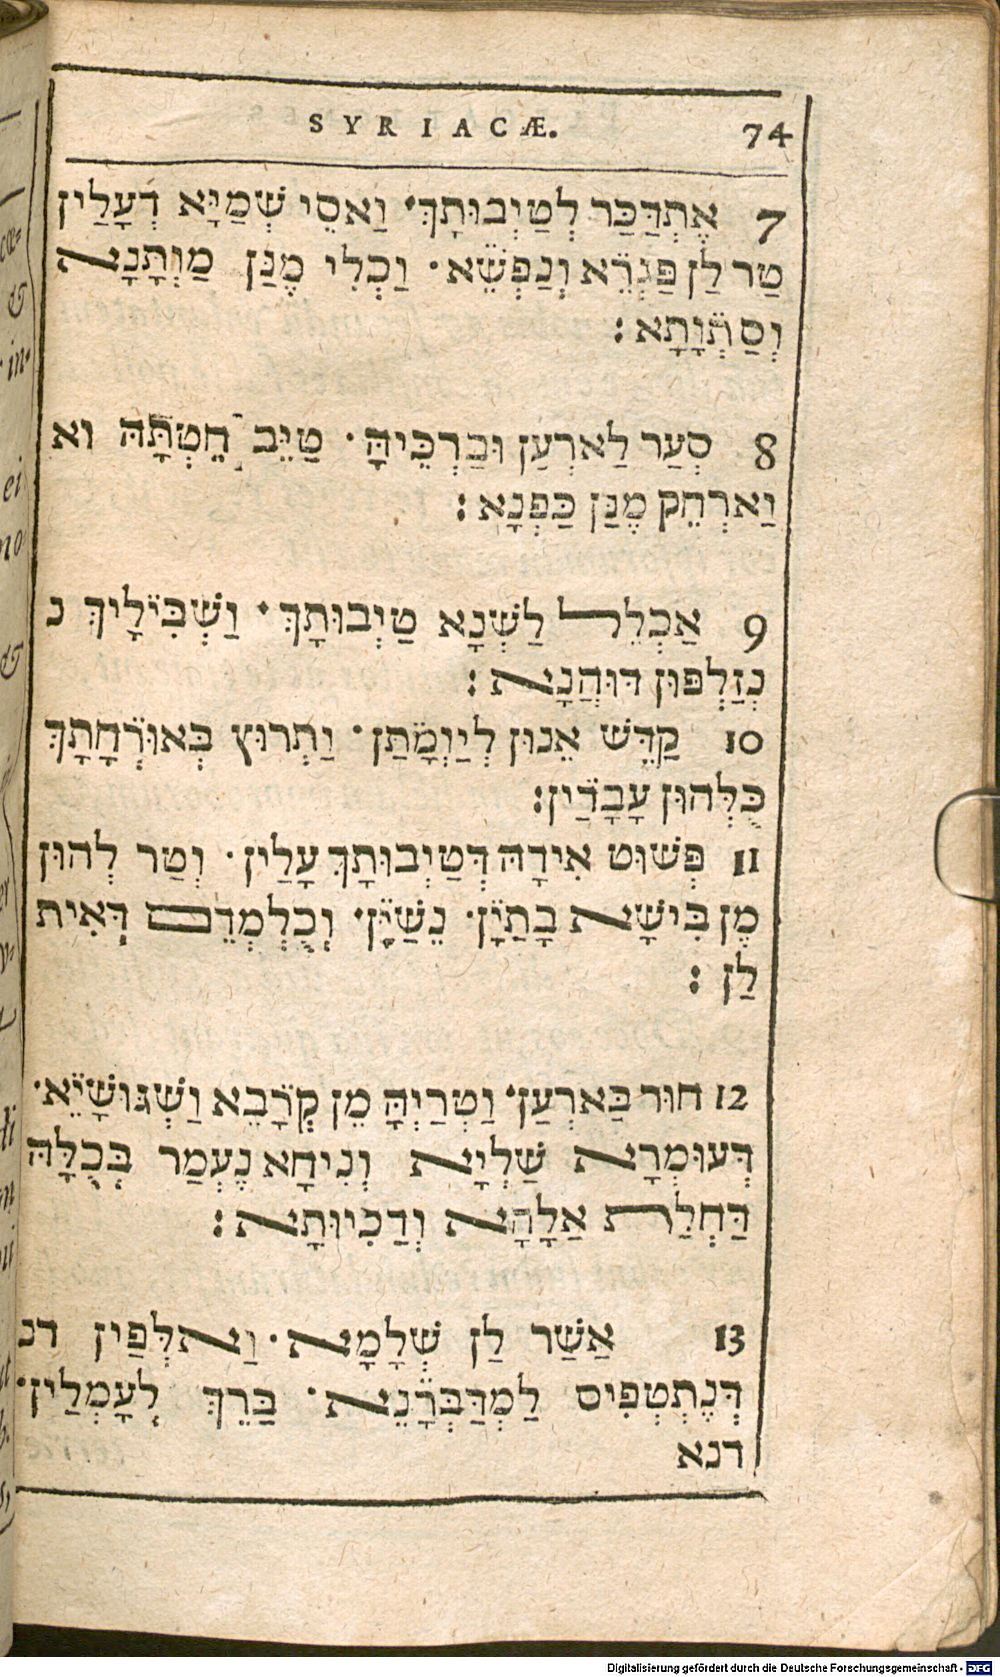 SYRIACÆ. 74
7 אֶתְדַּכַּר לְטַיְבוּתָךְ׳ וַאסֵי שְׁמַיָּא דְעָלַין
טַר לַן פַּגְרֵ̈א וְנַפְשֵׁ̈א׳ וַכְלִי מֶנַן מַוְתָנָא
וְסַתְ̈וָתָא׃
8 סְעַר לַארְעַן וּבַרְכֵּיהָּ׳ טַיֵּב חֵטְתָּהּ וא
וַארְחֵק מֶנַּן כַּפְנָא׃
9 אַכְלֵל לַשְׁנָא טַיְבוּתָךְ׳ וַשְׁבִּ̈ילָיךְ נ
נְזַלְפּוּן דּוּהֲנָא׃
10 קַדֵּשׁ אֵנוּן לְיַוְמָ̈תַן׳ וַתְרוּץ בְּאוּרְ̈חָתָךְ
כֻּלְּהוּן עָבָדַ̈ין׃
11 פְּשׁוּט אִידָהּ דְּטַיְבוּתָךְ עָלַין׳ וְטַר לְהוּן
מֶן בִּישָׁא בָתַ̈יָּן׳ נֵשַׁ̈יָּן׳ וְכֻלְמְדֵם דְּאִית
לַן׃
12 חוּר בַּארְעַן׳ וַטְרַיְהָּ מֵן קְרָ̈בֵא וַשְׁגּוּשָׁ̈יֵא׳
דְּעוּמְרָא שַׁלְיָא וְנִיחָא נֶעְמַר בְּכֻלָּהּ
דַּחְלַת אַלָהָא וְדַכִיוּתָא׃
13 אַשַׁר לַן שְׁלָמָא׳ וַאלְּפַין דנ
דְּנֶתְטְפִּיס לַמְדַּבְּרָ̈נֵא׳ בַּרֵךְ לְעָמְלַין׳
דנא
Digitalisierung gefördert durch die Deutsche Forschungsgemeinschaft - DFG